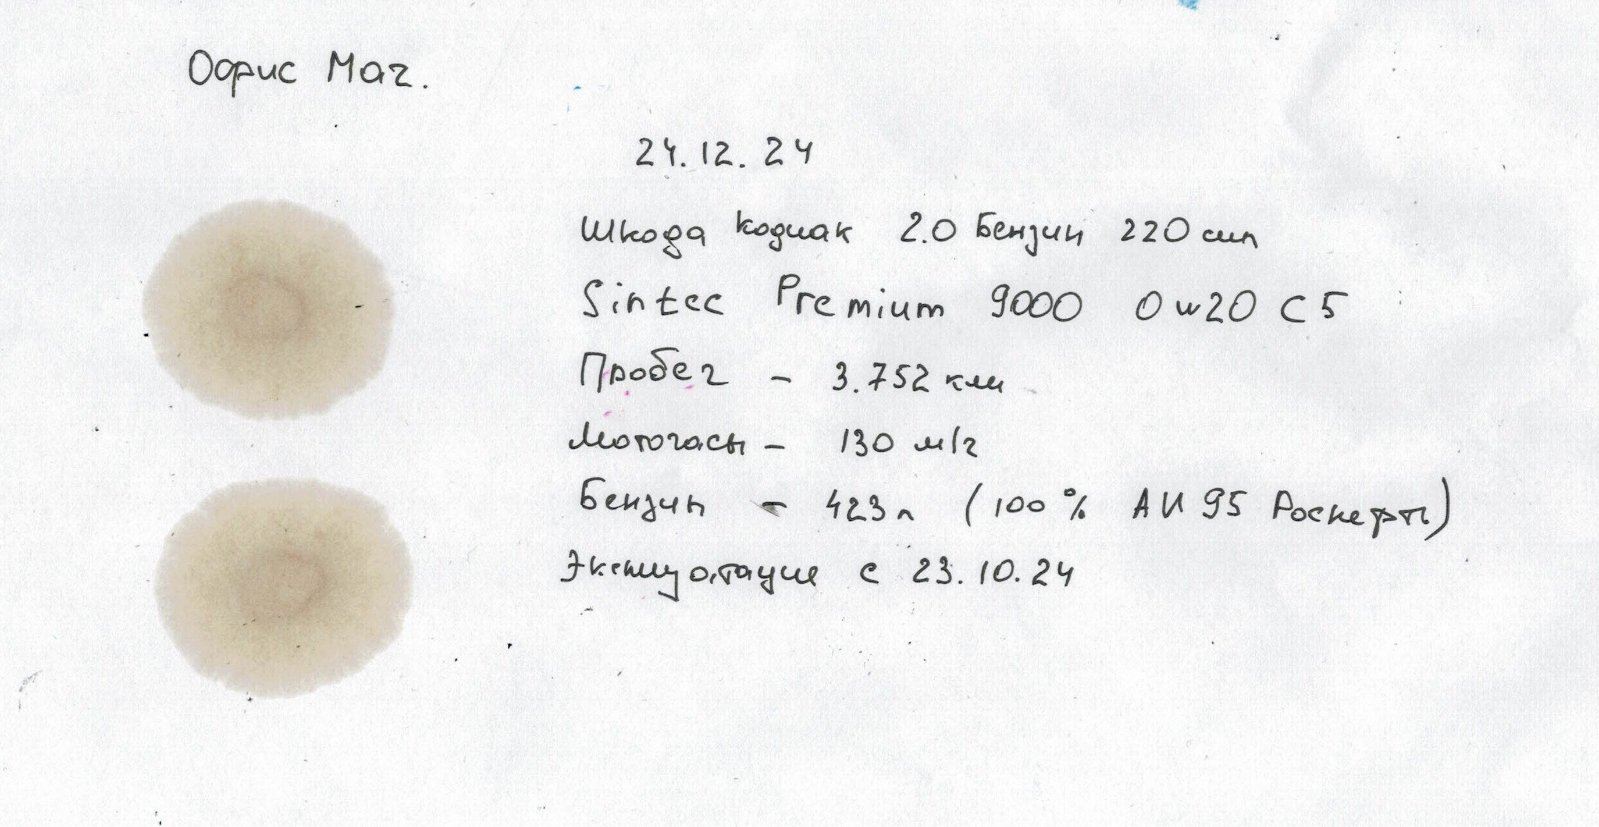 Офис Маг.
24.12.24
Шкода Кодиак 2.0 Бензин 220 сил
Sintec Premium 9000 0w20 C5
Пробег - 3.752 км
Моточасы - 130 м/ч
Бензин - 423л (100% АИ 95 Роснефть)
Эксплуатация с 23.10.24